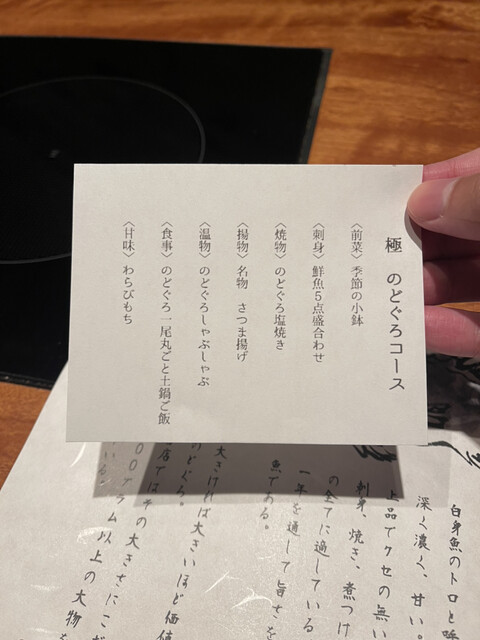 極 のどぐろコース
〈前菜〉季節の小鉢
〈刺身〉鮮魚5点盛合わせ
〈焼物〉のどぐろ塩焼き
〈揚物〉名物 さつま揚げ
〈温物〉のどぐろしゃぶしゃぶ
〈食事〉のどぐろ一尾丸ごと土鍋ご飯
〈甘味〉わらびもち
白身魚のトロと
深く濃く、甘い。
上品でクセの無い
刺身、焼き、煮つけ
の全てに適している
一年を通して旨さを
魚である。
大きければ大きいほど価値
のどぐろ。
店ではその大きさにこだ
00グラム以上の大物を
いる。